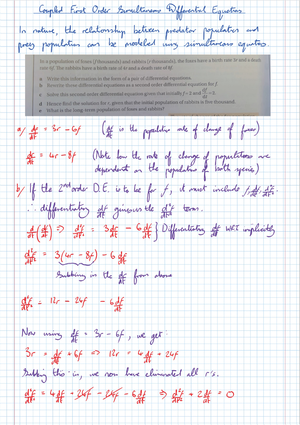 Coupled First Order Simultaneous Differential Equations
In nature, the relationship between predator population and
prey population can be modelled using simultaneous equations.
In a population of foxes (f thousands) and rabbits (r thousands), the foxes have a birth rate 3r and a death
rate 6f. The rabbits have a birth rate of 4r and a death rate of 8f.
a Write this information in the form of a pair of differential equations.
b Rewrite these differential equations as a second order differential equation for f
c Solve this second order differential equation given that initially f = 2 and
d Hence find the solution for r, given that the initial population of rabbits is five thousand.
e What is the long term population of foxes and rabbits?
a/ df/dt = 3r - 6f (df/dt is the population rate of change of foxes)
dr/dt = 4r - 8f (Note how the rate of change of populations are
dependent on the population of both species)
b/ If the 2nd order D.E. is to be for f, it must include f, df/dt, d²f/dt².
∴ differentiating df/dt gives us the d²f/dt² term.
d/dt(df/dt) => d²f/dt² = 3 dr/dt - 6 df/dt } Differentiating df/dt WRT implicitly
d²f/dt² = 3(4r - 8f) - 6 df/dt
Subbing in the dr/dt from above
d²f/dt² = 12r - 24f - 6 df/dt
Now using df/dt = 3r - 6f, we get:
3r = df/dt + 6f => 12r = 4 df/dt + 24f
Subbing this in, we now have eliminated all r's.
d²f/dt² = 4 df/dt + 24f - 24f - 6 df/dt => d²f/dt² + 2 df/dt = 0